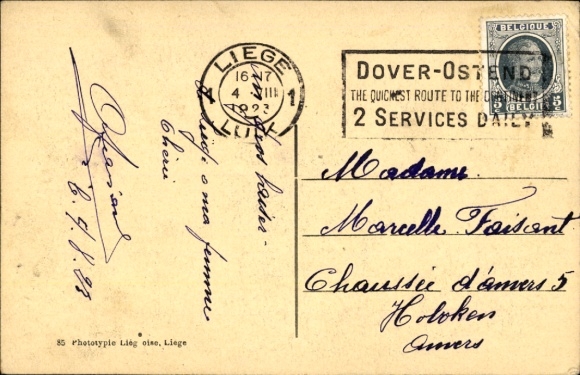 LIEGE
16-17
4 VIII
1923
LUIK
1
DOVER-OSTEND
THE QUICKEST ROUTE TO THE CONTINENT
2 SERVICES DAILY
BELGIQUE
5 5
BELGIE
Un gros baiser
à ma femme
Chérie
4/8/23
Madame
Marcelle Faisant
Chaussée d'anvers 5
Hoboken
Anvers
85 Phototypie Liég oise, Liege